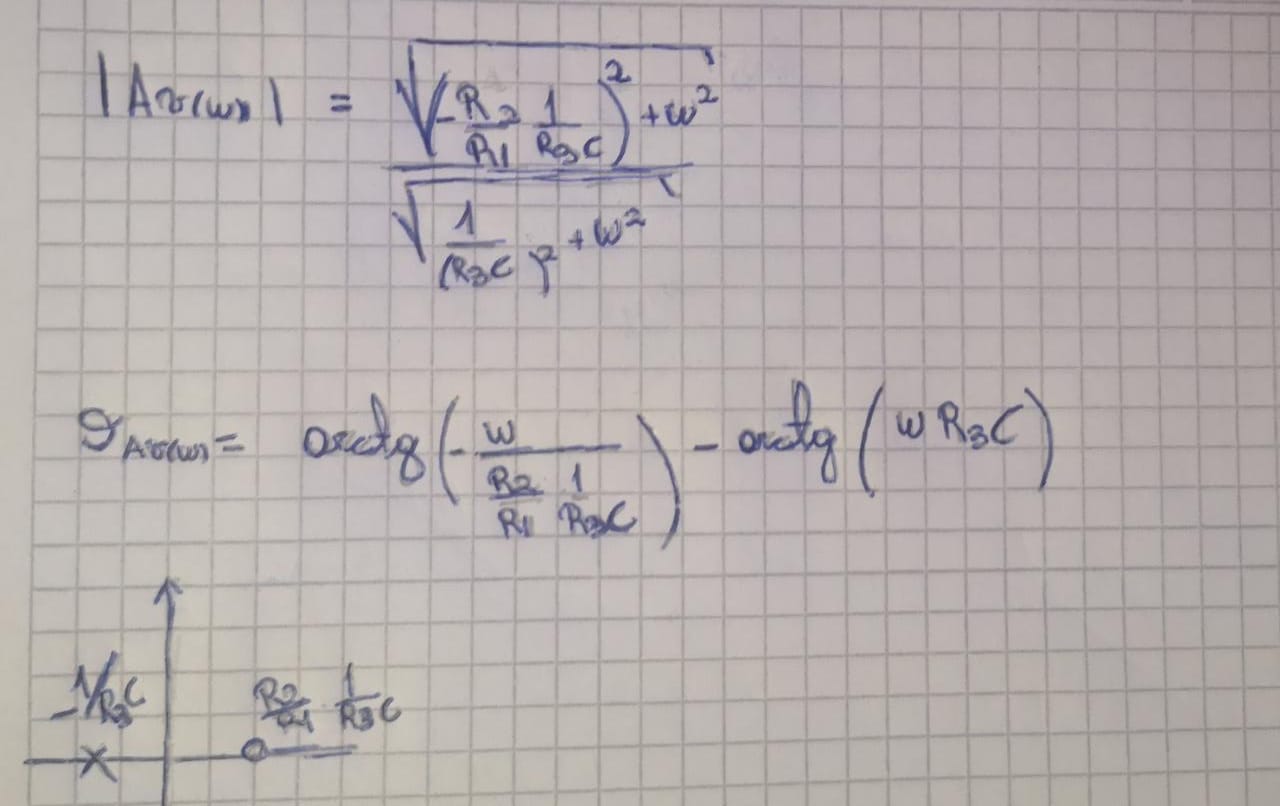 |Av(ω)| = √((-R2/R1 1/R3C)² + ω²) / √(1/(R3C)² + ω²)
φAv(ω) = arctg(-ω/(R2/R1 1/R3C)) - arctg(ωR3C)
-1/R3C
R2/R1 · 1/R3C